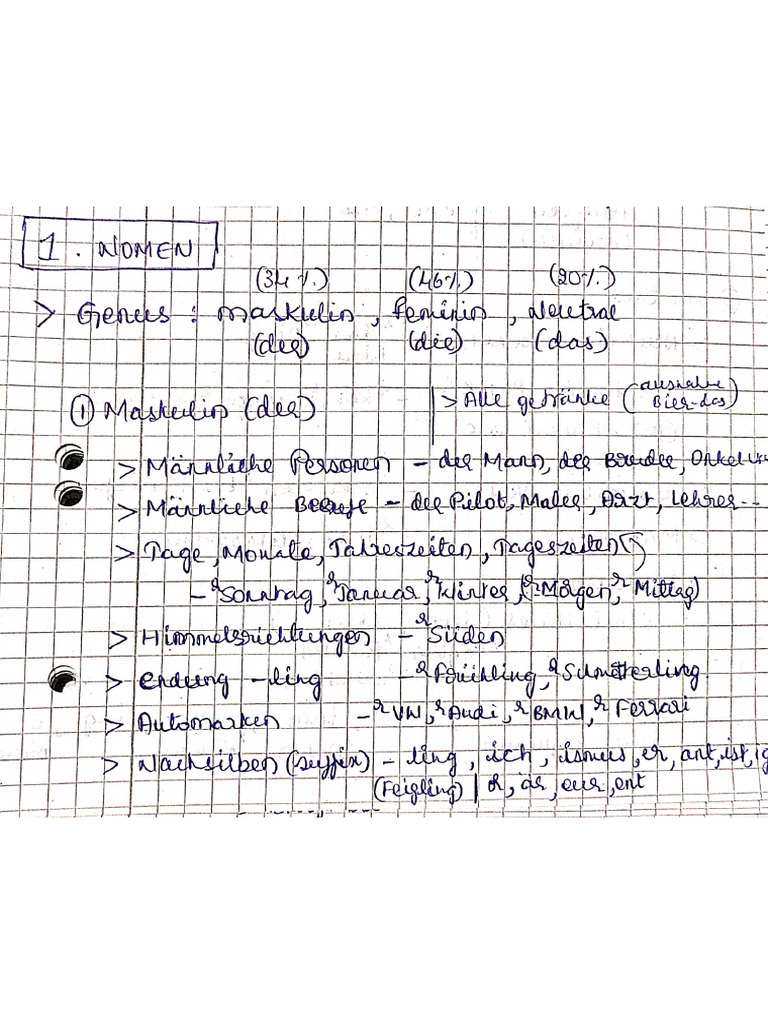 1. NOMEN
(34%) (46%) (20%)
> Genus : Maskulin, feminin, Neutral
(der) (die) (das)
① Maskulin (der)
> Alle getränke (ausnahme Bier-das)
> Männliche Personen - der Mann, der Bruder, Onkel
> Männliche Berufe - der Pilot, Maler, Arzt, Lehrer...
> Tage, Monate, Jahreszeiten, Tageszeiten
- r Sonntag, r Januar, r Winter, (r Morgen, r Mittag)
> Himmelsrichtungen - r Süden
> endung -ling - r Früihling, r Schmetterling
> Automarken - r VW, r Audi, r BMW, r Ferrari
> Nachsilben (suffix) - ling, ich, ismus, er, ant, ist, ig
(Feigling) | or, är, eur, ent